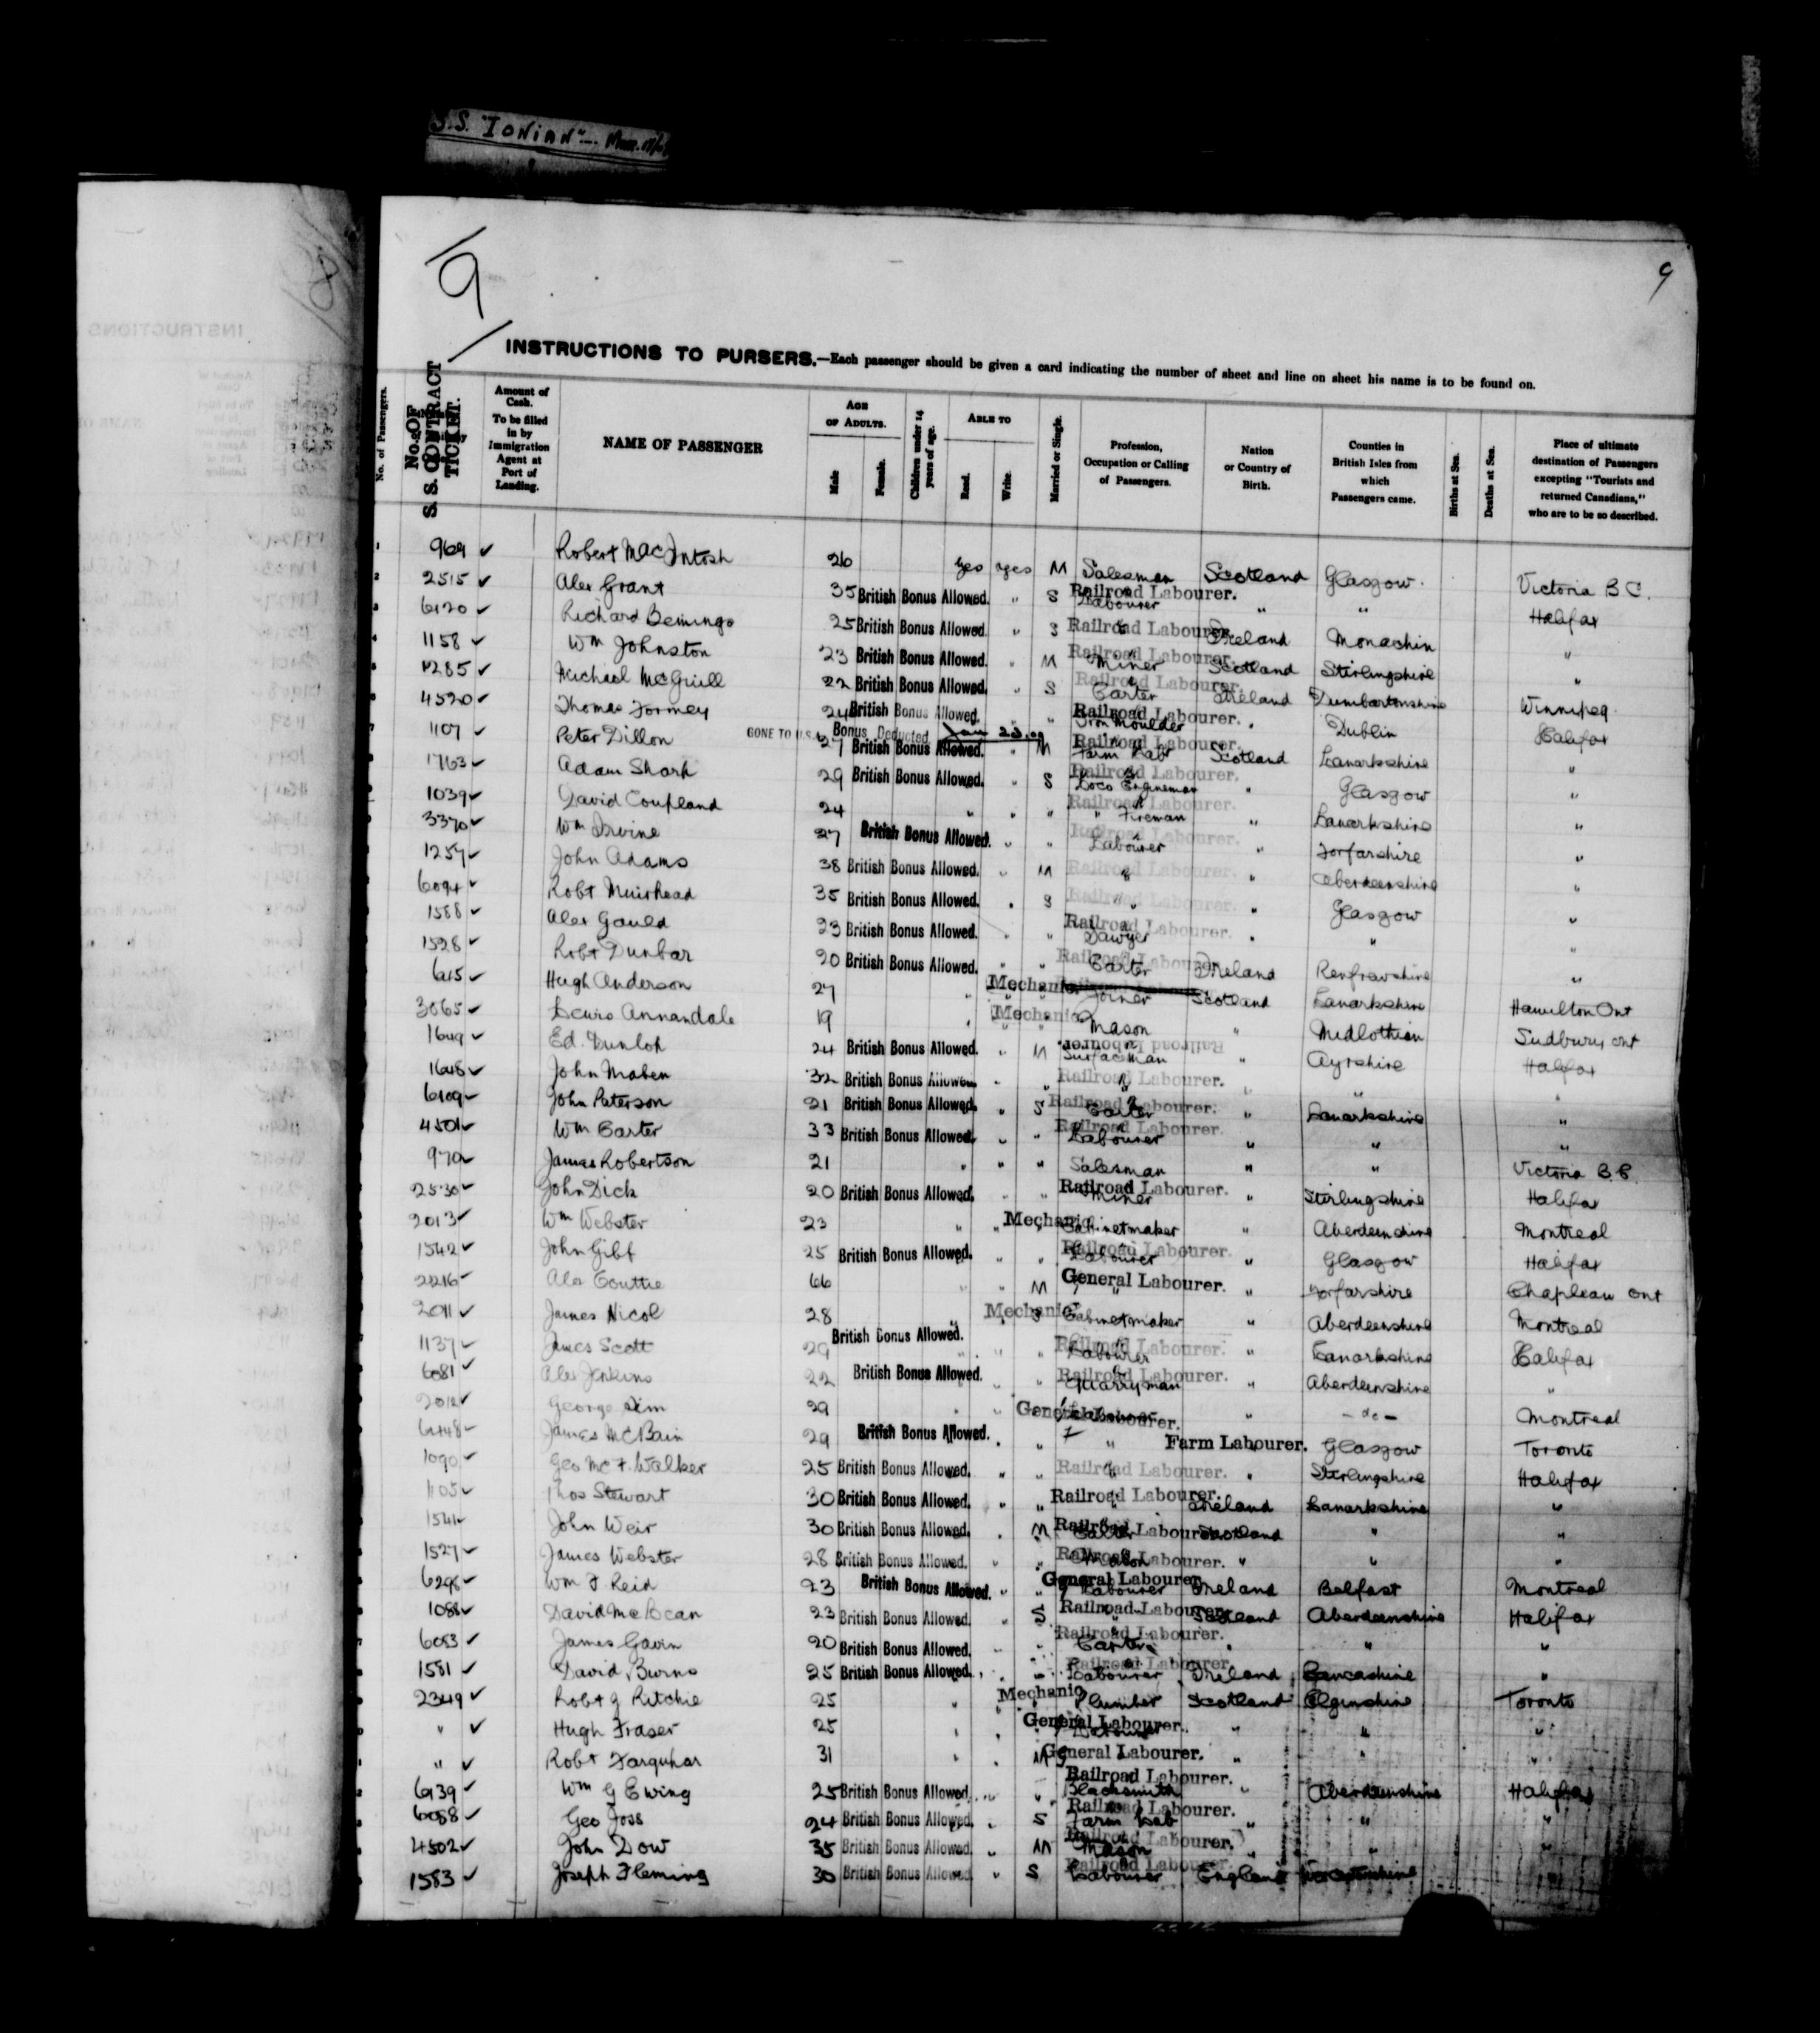 S.S. "IONIAN"
9
9
INSTRUCTIONS
INSTRUCTIONS TO PURSERS.—Each passenger should be given a card indicating the number of sheet and line on sheet his name is to be found on.
No. of Passengers. No. OF S. S. CONTRACT TICKET. Amount of Cash. To be filled in by Immigration Agent at Port of Landing. NAME OF PASSENGER AGE OF ADULTS. Male Female. Children under 14 years of age. ABLE TO Read. Write. Married or Single. Profession, Occupation or Calling of Passengers. Nation or Country of Birth. Counties in British Isles from which Passengers came. Births at Sea. Deaths at Sea. Place of ultimate destination of Passengers excepting "Tourists and returned Canadians," who are to be so described.
1 969 ✓ Robert MacIntosh 26 yes yes M Salesman Scotland Glasgow Victoria B.C.
2 2515 ✓ Alex Grant 35 British Bonus Allowed. " S Railroad Labourer. Labourer " " Halifax
3 6120 ✓ Richard 25 British Bonus Allowed. " S Railroad Labourer. Ireland Monachin "
4 1158 ✓ Wm Johnston 23 British Bonus Allowed. " M Railroad Labourer. Miner Scotland Stirlingshire "
5 1285 ✓ Michael 22 British Bonus Allowed. " S Railroad Labourer. Carter Ireland Dumbartonshire Winnipeg
6 4520 ✓ Thomas Tormey 24 British Bonus Allowed. " " Railroad Labourer. Iron Moulder " Dublin Halifax
7 1107 ✓ Peter Dillon GONE TO U.S.A. Bonus Deducted Jan 23.09 27 British Bonus Allowed. " M Railroad Labourer. Farm Labr Scotland Lanarkshire "
1763 ✓ Adam Shark 29 British Bonus Allowed. " S Railroad Labourer. Loco Engineman " Glasgow "
1039 ✓ David Coupland 24 " " " Railroad Labourer. " Fireman " Lanarkshire "
3370 ✓ Wm Irvine 27 British Bonus Allowed. " " Railroad Labourer. Labourer " Forfarshire "
1257 ✓ John Adams 38 British Bonus Allowed. " M Railroad Labourer. " " Aberdeenshire "
6094 ✓ Robt Muirhead 35 British Bonus Allowed. " S Railroad Labourer. " " Glasgow "
1588 ✓ Alex Gauld 23 British Bonus Allowed. " " Railroad Labourer. Sawyer " " "
1528 ✓ Robt Dunbar 20 British Bonus Allowed. " " Railroad Labourer. Carter Ireland Renfrewshire "
615 ✓ Hugh Anderson 27 " Mechanic. Joiner Scotland Lanarkshire Hamilton Ont
3065 ✓ Lewis Annandale 19 " Mechanic Mason " Midlothian Sudbury Ont
1649 ✓ Ed. Dunlop 24 British Bonus Allowed. " M Railroad Labourer. Surfaceman " Ayrshire Halifax
1648 ✓ John Maben 32 British Bonus Allowed. " " Railroad Labourer. " " " "
6109 ✓ John Paterson 21 British Bonus Allowed. " S Railroad Labourer. Carter " Lanarkshire "
4501 ✓ Wm Carter 33 British Bonus Allowed. " " Railroad Labourer. Labourer " " "
970 ✓ James Robertson 21 " " " Salesman " " Victoria B.C.
2530 ✓ John Dick 20 British Bonus Allowed. " " Railroad Labourer. Miner " Stirlingshire Halifax
2013 ✓ Wm Webster 23 " " Mechanic Cabinetmaker " Aberdeenshire Montreal
1542 ✓ John Gibb 25 British Bonus Allowed. " " Railroad Labourer. Labourer " Glasgow Halifax
2216 ✓ Alex Couttie 66 " " M General Labourer. " " Forfarshire Chapleau Ont
2011 ✓ James Nicol 28 " Mechanic S Cabinetmaker " Aberdeenshire Montreal
1137 ✓ James Scott 29 British Bonus Allowed. " " Railroad Labourer. Labourer " Lanarkshire Halifax
6081 ✓ Alex Jenkins 22 British Bonus Allowed. " " Railroad Labourer. Quarryman " Aberdeenshire "
2012 ✓ George Sim 29 " " General Labourer. Labourer " - do - Montreal
6448 ✓ James McBain 29 British Bonus Allowed. " " " Farm Labourer. Glasgow Toronto
1090 ✓ Geo McF. Walker 25 British Bonus Allowed. " " Railroad Labourer. " Stirlingshire Halifax
1105 ✓ Thos Stewart 30 British Bonus Allowed. " " Railroad Labourer. Ireland Lanarkshire "
1541 ✓ John Weir 30 British Bonus Allowed. " M Railroad Labourer. Carter Scotland " "
1527 ✓ James Webster 28 British Bonus Allowed. " " Railroad Labourer. Mason " " "
6298 ✓ Wm F Reid 23 British Bonus Allowed. " " General Labourer. Labourer Ireland Belfast Montreal
1088 ✓ David McLean 23 British Bonus Allowed. " S Railroad Labourer. Scotland Aberdeenshire Halifax
6053 ✓ James Gavin 20 British Bonus Allowed. " " Railroad Labourer. Carter " " "
1581 ✓ David Burns 25 British Bonus Allowed. " " Railroad Labourer. Labourer Ireland Lancashire "
2349 ✓ Robt J Ritchie 25 " Mechanic Plumber Scotland Elginshire Toronto
" ✓ Hugh Fraser 25 " " General Labourer. Labourer " " "
" ✓ Robt Farquhar 31 " M General Labourer. " " "
6139 ✓ Wm G Ewing 25 British Bonus Allowed. " " Railroad Labourer. Blacksmith " Aberdeenshire Halifax
6088 ✓ Geo Joss 24 British Bonus Allowed. " S Railroad Labourer. Farm Lab " " "
4502 ✓ John Dow 35 British Bonus Allowed. " M Railroad Labourer. Mason " " "
1583 ✓ Joseph Fleming 30 British Bonus Allowed. " S Railroad Labourer. Labourer England Worcestershire "